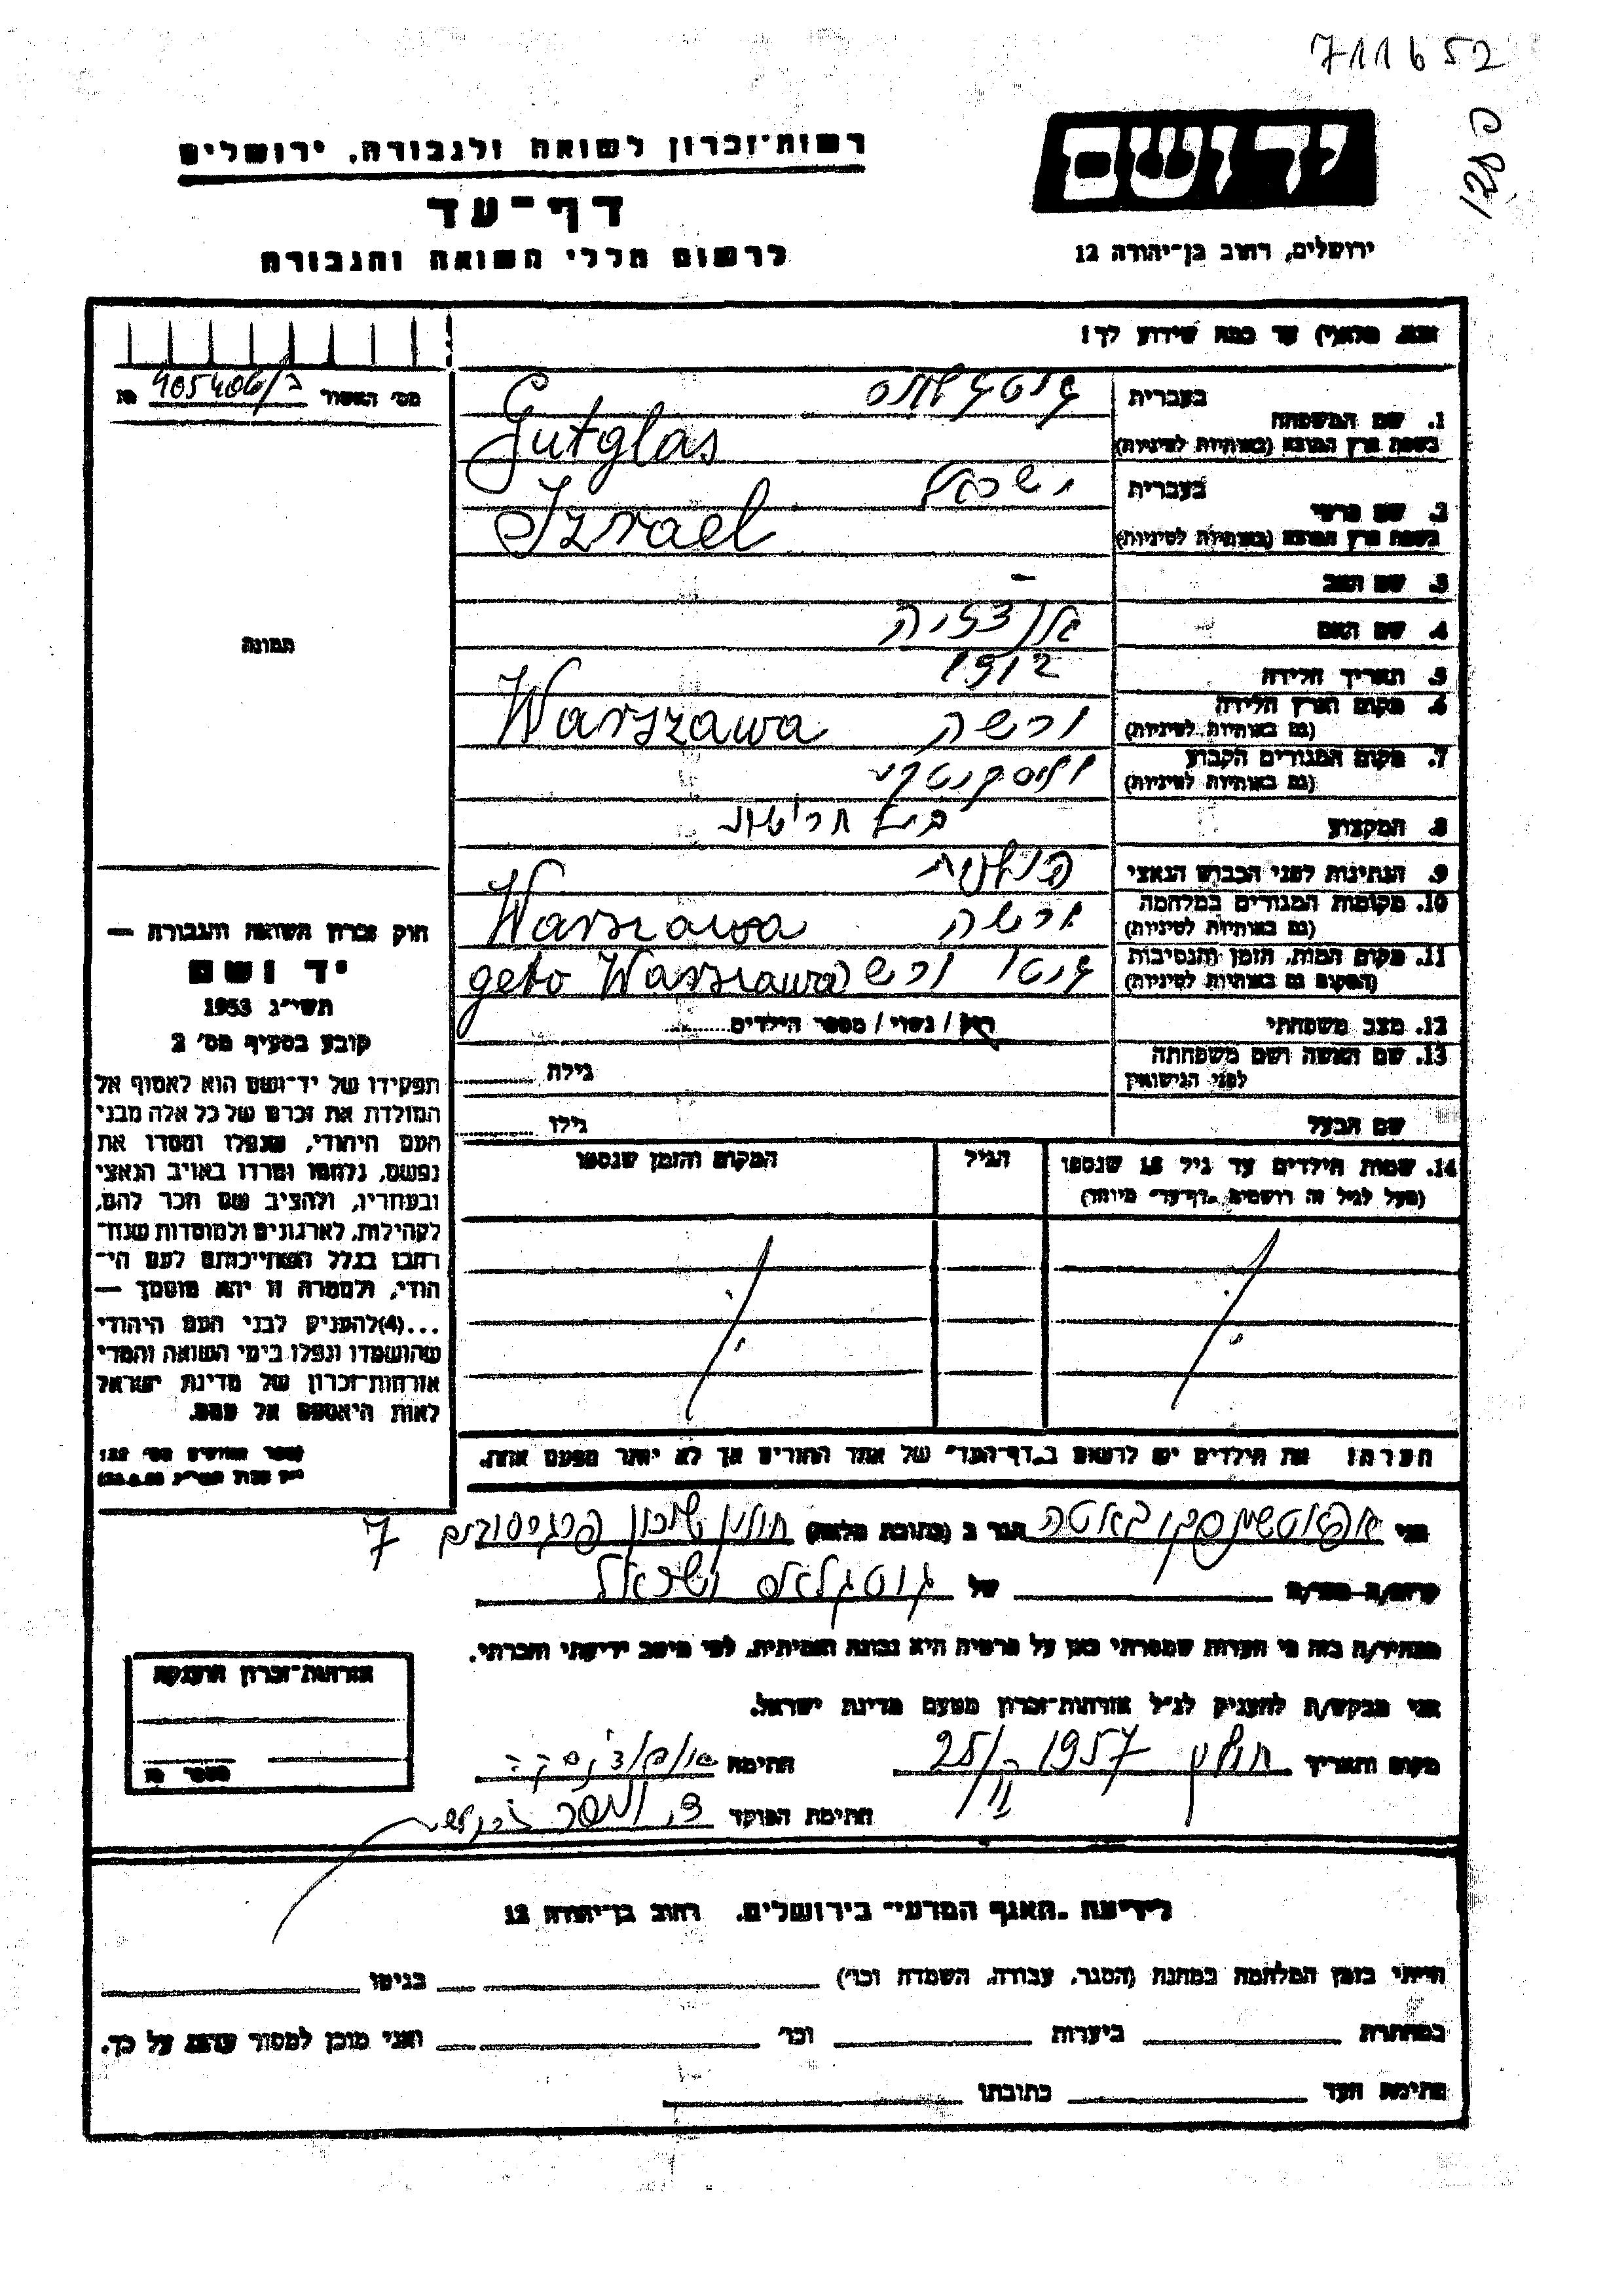 711652
פ 128
רשות־זכרון לשואה ולגבורה, ירושלים
דף־עד
לרשום חללי השואה והגבורה
יד ושם
ירושלים, רחוב בן־יהודה 12
אנא, מלא(י) עד כמה שידוע לך!
מס׳ האשור
תמונה
1. שם המשפחה
בעברית גוטגלאס
בשפת ארץ המוצא (באותיות לטיניות) Gutglas
2. שם פרטי
בעברית ישראל
בשפת ארץ המוצא (באותיות לטיניות) Izrael
3. שם האב –
4. שם האם
5. תאריך הלידה 1912
6. מקום וארץ הלידה
(גם באותיות לטיניות) ורשה Warszawa
7. מקום המגורים הקבוע
(גם באותיות לטיניות)
8. המקצוע
9. הנתינות לפני הכבוש הנאצי פולנית
10. מקומות המגורים במלחמה
(גם באותיות לטיניות) ורשה Warszawa
11. מקום המות, הזמן והנסיבות
(המקום גם באותיות לטיניות) גטו ורשה geto Warszawa
12. מצב משפחתי רווק / נשוי / מספר הילדים
13. שם האשה ושם משפחתה
לפני הנישואין גילה
שם הבעל גילו
14. שמות הילדים עד גיל 18 שנספו
(מעל לגיל זה רושמים „דף־עד״ מיוחד)
הגיל
המקום והזמן שנספו
הערה: את הילדים יש לרשום ב„דף־העד״ של אחד ההורים אך לא יותר מפעם אחת.
חוק זכרון השואה והגבורה —
יד ושם
תשי״ג 1953
קובע בסעיף מס׳ 2
תפקידו של יד־ושם הוא לאסוף אל
המולדת את זכרם של כל אלה מבני
העם היהודי, שנפלו ומסרו את
נפשם, נלחמו ומרדו באויב הנאצי
ובעוזריו, ולהציב שם וזכר להם,
לקהילות, לארגונים ולמוסדות שנח־
רבו בגלל השתייכותם לעם הי־
הודי, ולמטרה זו יהא מוסמך —
...(4) להעניק לבני העם היהודי
שהושמדו ונפלו בימי השואה והמרי
אזרחות־זכרון של מדינת ישראל
לאות היאספם אל עמם.
ספר החוקים מס׳ 132
אני הגר ב (כתובת מלאה) חולון שיכון 7
קרוב/ה מכר/ה של גוטגלאס ישראל
מצהיר/ה בזה כי העדות שמסרתי כאן על פרטיה היא נכונה ואמיתית, לפי מיטב ידיעתי והכרתי.
אני מבקש/ת להעניק לנ״ל אזרחות־זכרון מטעם מדינת ישראל.
מקום ותאריך חולון 25/11 1957 חתימה
חתימת הפוקד
אזרחות־זכרון הוענקה
מספר
לידיעת „האגף המדעי״ בירושלים, רחוב בן־יהודה 12
הייתי בזמן המלחמה במחנה (הסגר, עבודה, השמדה וכו׳) בגיטו
במחתרת ביערות וכו׳ ואני מוכן למסור עדות על כך.
חתימת העד כתובתו